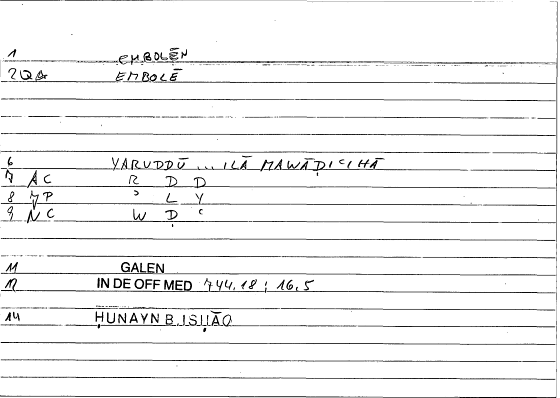 1 EMBOLĒN
2QA EMBOLĒ
6 YARUDDŪ ... ILĀ MAWĀḌIʿIHĀ
7 AC R D D
8 JP ʾ L Y
9 NC W Ḍ ʿ
11 GALEN
12 IN DE OFF MED 744.18 ; 16.5
14 ḤUNAYN B.ISḤĀQ